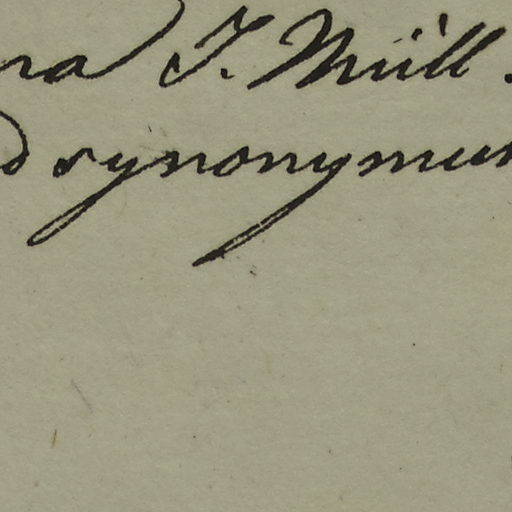 na J. Müll.
d synonymum